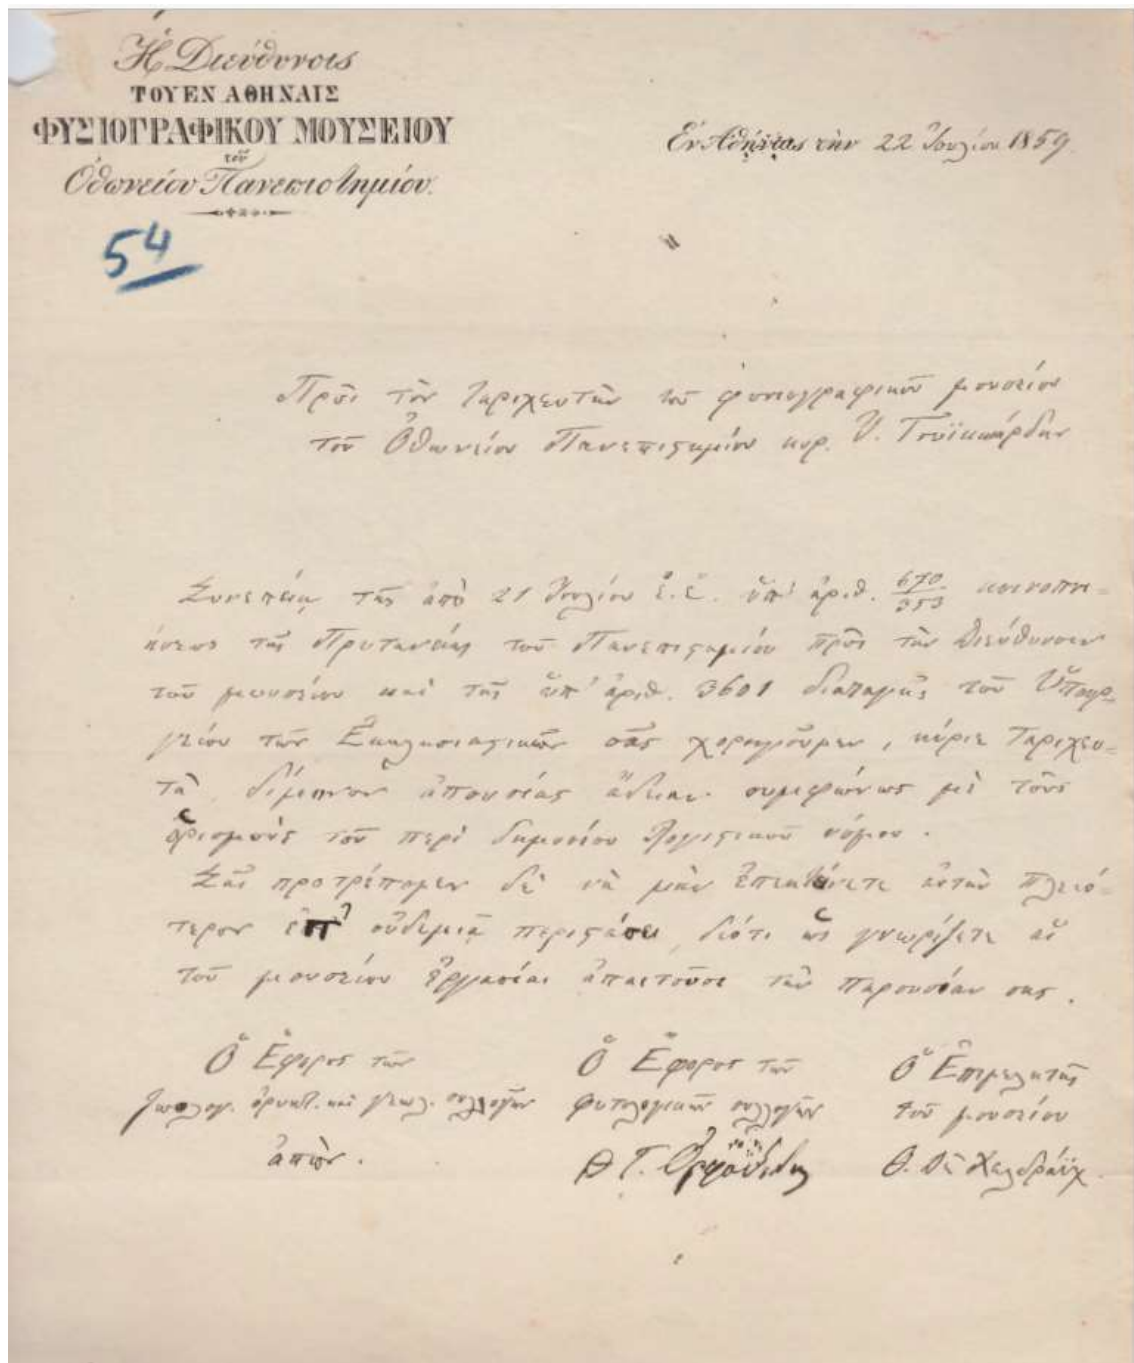 Ἡ Διεύθυνσις
ΤΟΥ ΕΝ ΑΘΗΝΑΙΣ
ΦΥΣΙΟΓΡΑΦΙΚΟΥ ΜΟΥΣΕΙΟΥ
τοῦ
Ὀθωνείου Πανεπιστημίου.
Ἐν Ἀθήναις τὴν 22 Ἰουλίου 1859.
54
Πρὸς τὸν ταριχευτὴν τοῦ φυσιογραφικοῦ μουσείου
τοῦ Ὀθωνείου Πανεπιστημίου κυρ.
Συνεπείᾳ τῆς ἀπὸ 21 Ἰουλίου ἔ. ἔ. ὑπ' ἀριθ. 670/353 κοινοποι-
ήσεως τῆς Πρυτανείας τοῦ Πανεπιστημίου πρὸς τὴν Διεύθυνσιν
τοῦ μουσείου καὶ τῆς ὑπ' ἀριθ. 3601 διαταγῆς τοῦ Ὑπουρ-
γείου τῶν Ἐκκλησιαστικῶν σᾶς χορηγοῦμεν, κύριε Ταριχευ-
τὰ, δίμηνον ἀπουσίας ἄδειαν συμφώνως μὲ τοὺς
ὁρισμοὺς τοῦ περὶ δημοσίου λογιστικοῦ νόμου.
Σᾶς προτρέπομεν δὲ νὰ μὴν ἐπεκτείνετε αὐτὴν πλειό-
τερον ἐπ' οὐδεμιᾷ περιστάσει, διότι ὡς γνωρίζετε αἱ
τοῦ μουσείου ἐργασίαι ἀπαιτοῦσι τὴν παρουσίαν σας.
Ὁ Ἔφορος τῶν
ζωολογ. ὀρυκτ. καὶ γεωλ. συλλογῶν
ἀπών.
Ὁ Ἔφορος τῶν
φυτολογικῶν συλλογῶν
Θ Γ. Ὀρφανίδης
Ὁ Ἐπιμελητὴς
τοῦ μουσείου
Θ. δὲ Χελδράϊχ.